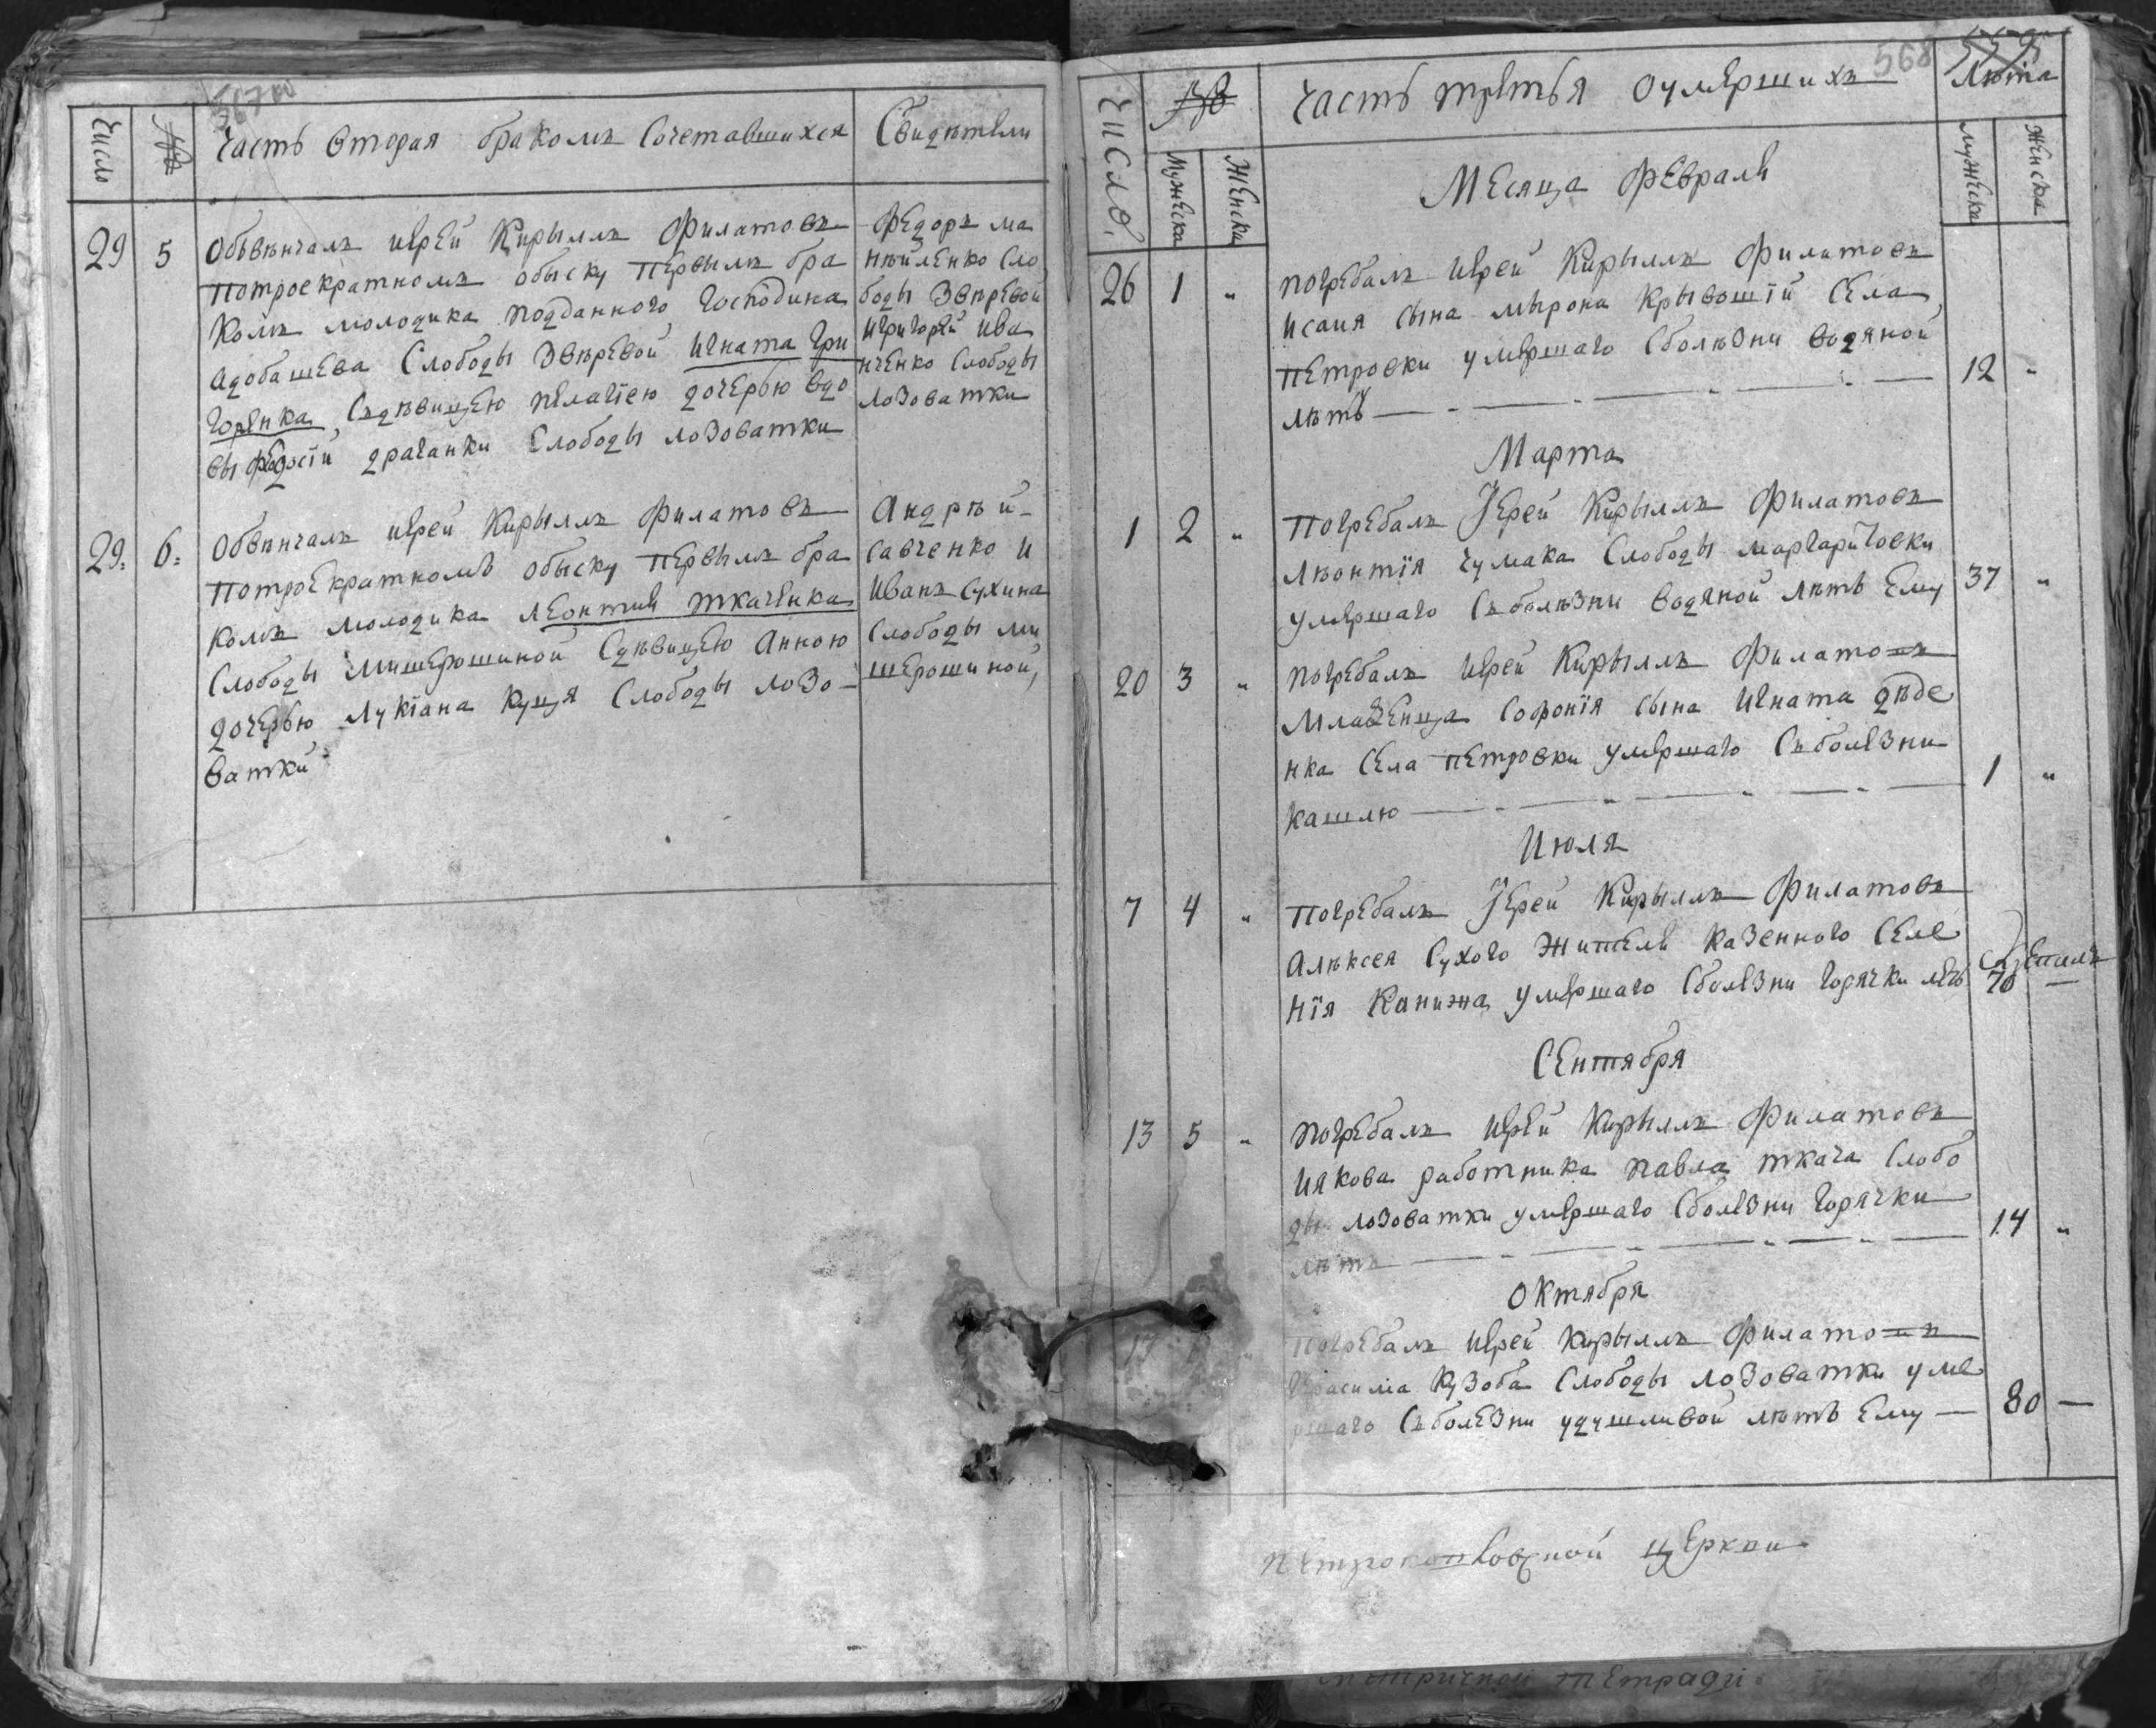 567 об
Число
№
Часть вторая бракомъ сочетавшихся
Свидѣтели
29
5
Объвѣнчалъ иерей Кирыллъ Филатовъ
потроекратномъ обыску первымъ бра
комъ молодика подданного Господина
Адобашева Слободы Звѣревой Игната Гри
горенка Съдѣвицею пелагіею дочерью вдо
вы Федосіи драганки Слободы лозоватки
Федоръ ма
нѣйленко Сло
боды Звѣревой
игригорей ива
нченко Слободы
лозоватки
29.
6.
Обвѣнчалъ иерей Кирыллъ Филатовъ
потроекратномъ обыску первымъ бра
комъ молодика леонтия ткаченка
Слободы мишерошиной Сдѣвицею Анною
дочерью лукіана куця Слободы лозо-
ватки
Андрѣй
савченко и
Иванъ сухина
слободы ми
шерошиной,
568
Число.
№
Мужеска
Женска
Часть третья оумершихъ
Лѣта
мужеска
женска
Месяца Февраля
26
1
"
погребалъ иерей Кирыллъ Филатовъ
исаия сына мырона крывошіи Села
петровки умершаго сболѣзни водяной
лѣтъ
12
"
Марта
1
2
"
Погребалъ Іерей Кирыллъ Филатовъ
лѣонтія чумака Слободы маргаритовки
умершаго съболѣзни водяной лѣтъ ему
37
"
20
3
"
погребалъ иерей Кирыллъ Филатовъ
младенца софронія сына игната дѣде
нка Села петровки умершаго съболезни
кашлю
1
"
Июля
7
4
"
Погребалъ Іерей Кирыллъ Филатовъ
алѣксея сухого жителя казенного Селе
нія Канижа умершаго сболезни горячки летъ
70
Сентября
13
5
"
погребалъ иерей Кирыллъ Филатовъ
иякова работника павла ткача Слобо
ды лозоватки умершаго сболезни горячки
лѣтъ
14
"
Октября
погребалъ иерей кирыллъ Филатовъ
Герасима кузоба Слободы лозоватки уме
ршаго съболезни удушливой лѣтъ ему
80
церкви
метричной тетради